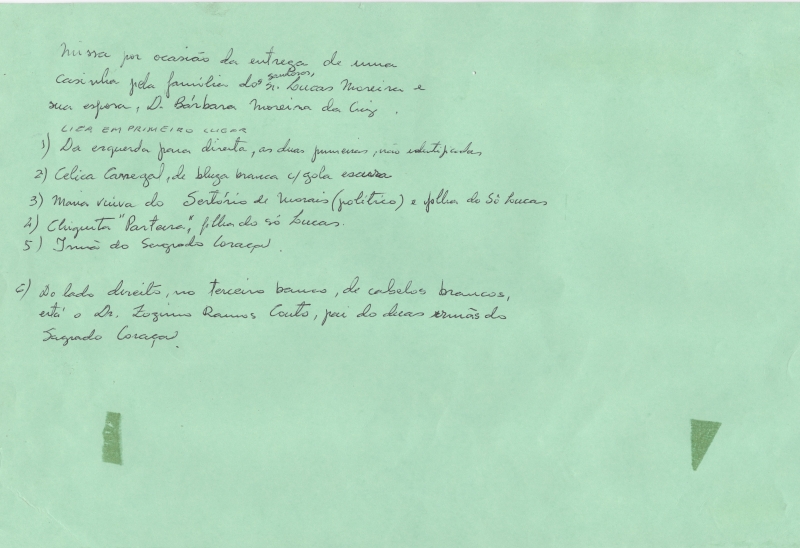 Missa por ocasião da entrega de uma
casinha pela família dos saudosos,
sr. Lucas Moreira e
sua esposa, D. Bárbara Moreira da Cruz.
EM PRIMEIRO LUGAR
1) Da esquerda para direita, as duas primeiras, não identificadas
2) Celica Carregal, de bluza branca c/gola escura
3) Maria viuva do Sertório de Morais (político) e filha do Sô Lucas
4) Chiquita "Parteira", filha do só Lucas.
5) Irmã do Sagrado Coração.
6) Do lado direito, no terceiro banco, de cabelos brancos,
está o Dr. Zozimo Ramos Couto, pai do duas irmãs do
Sagrado Coração.